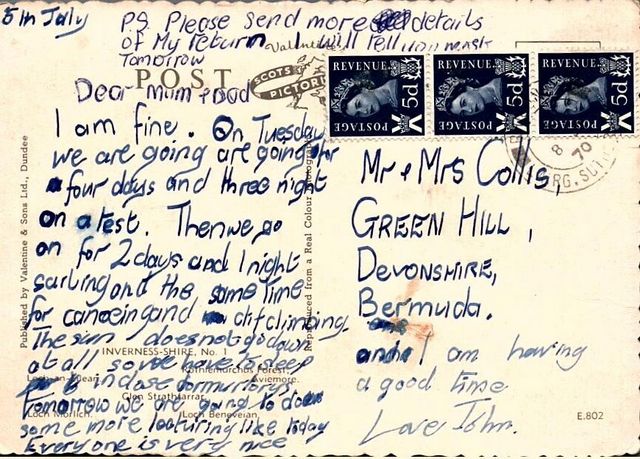 5th July
P.S Please send more details
of my return I will tell
Tomorrow
Valentine's
POST
SCOTS
PICTORI
REVENUE
POSTAGE
5d
REVENUE
POSTAGE
5d
REVENUE
POSTAGE
5d
8
70
RG. SUT
Dear Mum + Dad
I am fine. On Tuesday
we are going are going for
four days and three night
on a test. Then we go
on for 2 days and 1 night
sailing and the same time
for canoeing and clifclimbing.
The sun does not go down
at all so we have to sleep
in close dormurlorys
Tomorrow we are going to do
some more lecturing like today
Everyone is very nice
Mr + Mrs Collis,
GREEN HILL,
DEVONSHIRE,
Bermuda.
and I am having
a good time
Love John.
Published by Valentine & Sons Ltd., Dundee
Reproduced from a Real Colour Photograph
INVERNESS-SHIRE, No. 1
Rothiemurchus Forest
Aviemore.
Glen Strathfarrar.
Loch Morlich.
Loch Beneveian.
E.802